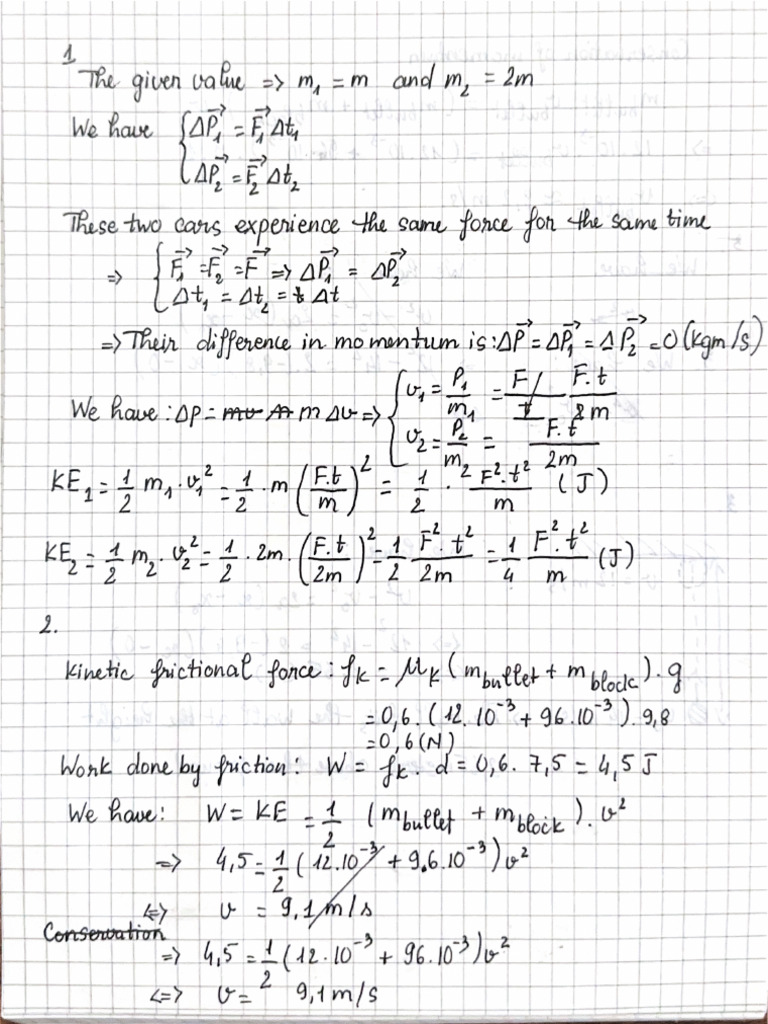 1
The given value => m₁ = m and m₂ = 2m
We have { ΔP⃗₁ = F⃗₁ Δt₁
ΔP⃗₂ = F⃗₂ Δt₂
These two cars experience the same force for the same time
=> { F⃗₁ = F⃗₂ = F⃗ => ΔP⃗₁ = ΔP⃗₂
Δt₁ = Δt₂ = Δt
=> Their difference in momentum is : ΔP⃗ = ΔP⃗₁ = ΔP⃗₂ = 0 (kgm/s)
We have : ΔP = m Δv => { v₁ = P₁/m₁ = F.t/m
v₂ = P₂/m₂ = F.t/2m
KE₁ = 1/2 m₁ . v₁² = 1/2 . m (F.t/m)² = 1/2 . F².t²/m (J)
KE₂ = 1/2 m₂ . v₂² = 1/2 . 2m . (F.t/2m)² = 1/2 F².t²/2m = 1/4 F².t²/m (J)
2.
Kinetic frictional force : fₖ = μₖ (m_bullet + m_block) . g
= 0,6 . (12.10⁻³ + 96.10⁻³) . 9,8
= 0,6 (N)
Work done by friction : W = fₖ . d = 0,6 . 7,5 = 4,5 J
We have : W = KE = 1/2 (m_bullet + m_block) . v²
=> 4,5 = 1/2 (12.10⁻³ + 9,6.10⁻³) v²
<=> v = 9,1 m/s
Conservation
=> 4,5 = 1/2 (12.10⁻³ + 96.10⁻³) v²
<=> v = 9,1 m/s